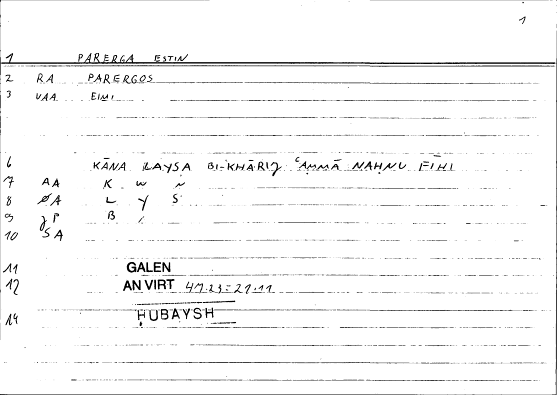 1
1 PARERGA ESTIN
2 RA PARERGOS
3 VAA EIMI
6 KĀNA LAYSA BI-KHĀRIJ ʿAMMĀ NAḤNU FĪHI
7 AA K W N
8 ØA L Y S
9 JP B /
10 SA
11 GALEN
12 AN VIRT 47.23 = 27.11
14 ḤUBAYSH